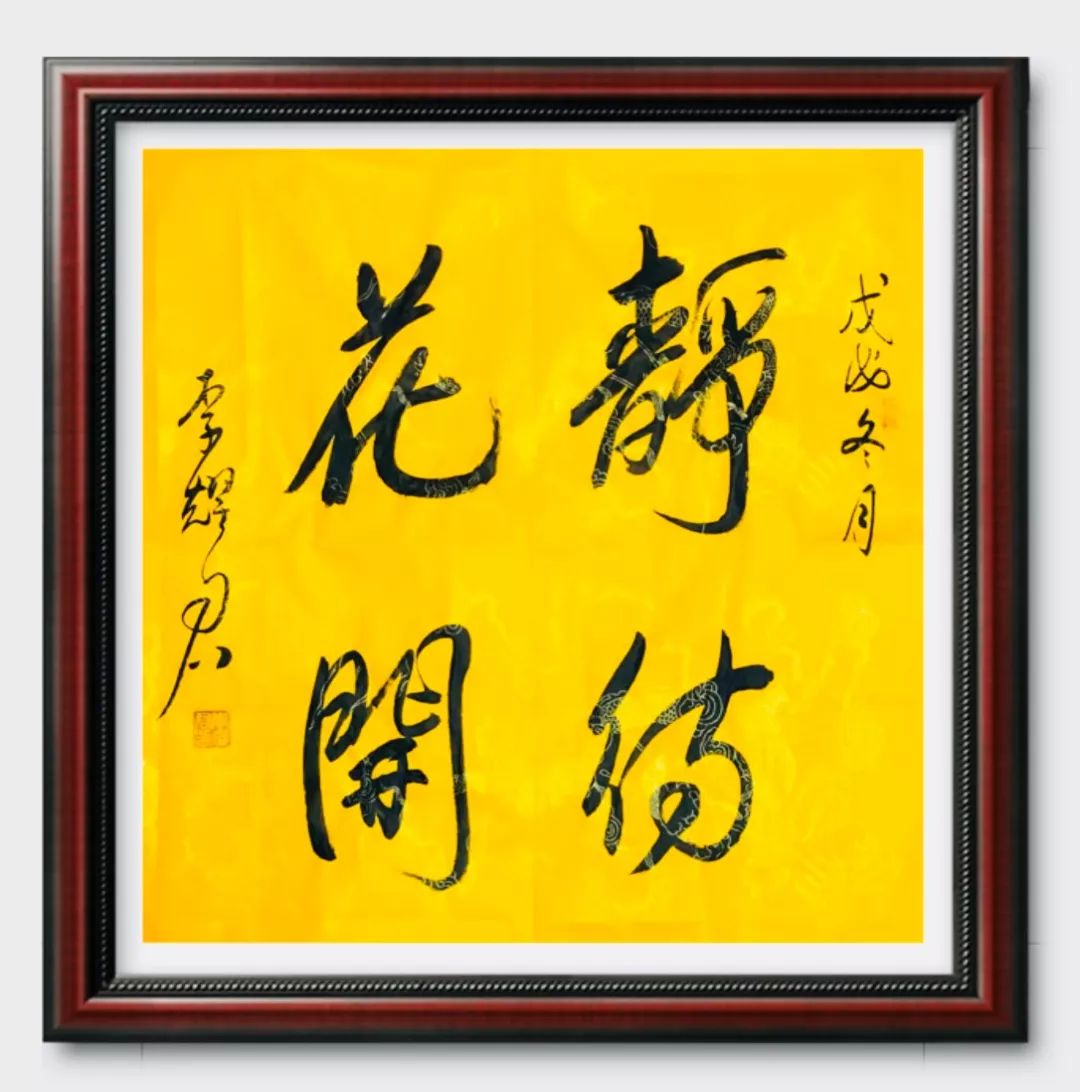 戊戌冬月
靜待
花開
李耀君